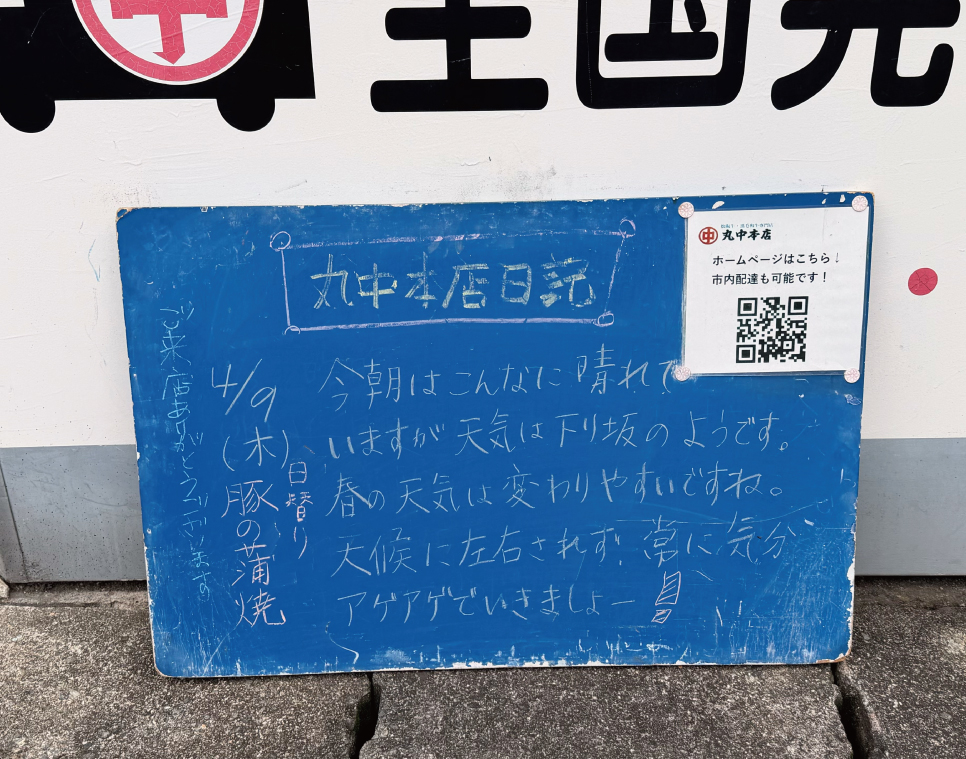 全国発
丸中本店日記
松阪牛・黒毛和牛専門店
丸中本店
ホームページはこちら↓
市内配達も可能です！
今朝はこんなに晴れて
いますが天気は下り坂のようです。
春の天気は変わりやすいですね。
天候に左右されず！常に気分
アゲアゲでいきましょー
4/9
(木)
日替り
豚の蒲焼
ご来店ありがとうございます